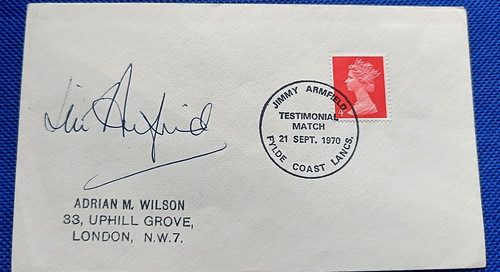 Jim Armfield
JIMMY ARMFIELD
TESTIMONIAL
MATCH
21 SEPT. 1970
FYLDE COAST LANCS.
ADRIAN M. WILSON
33, UPHILL GROVE,
LONDON, N.W.7.